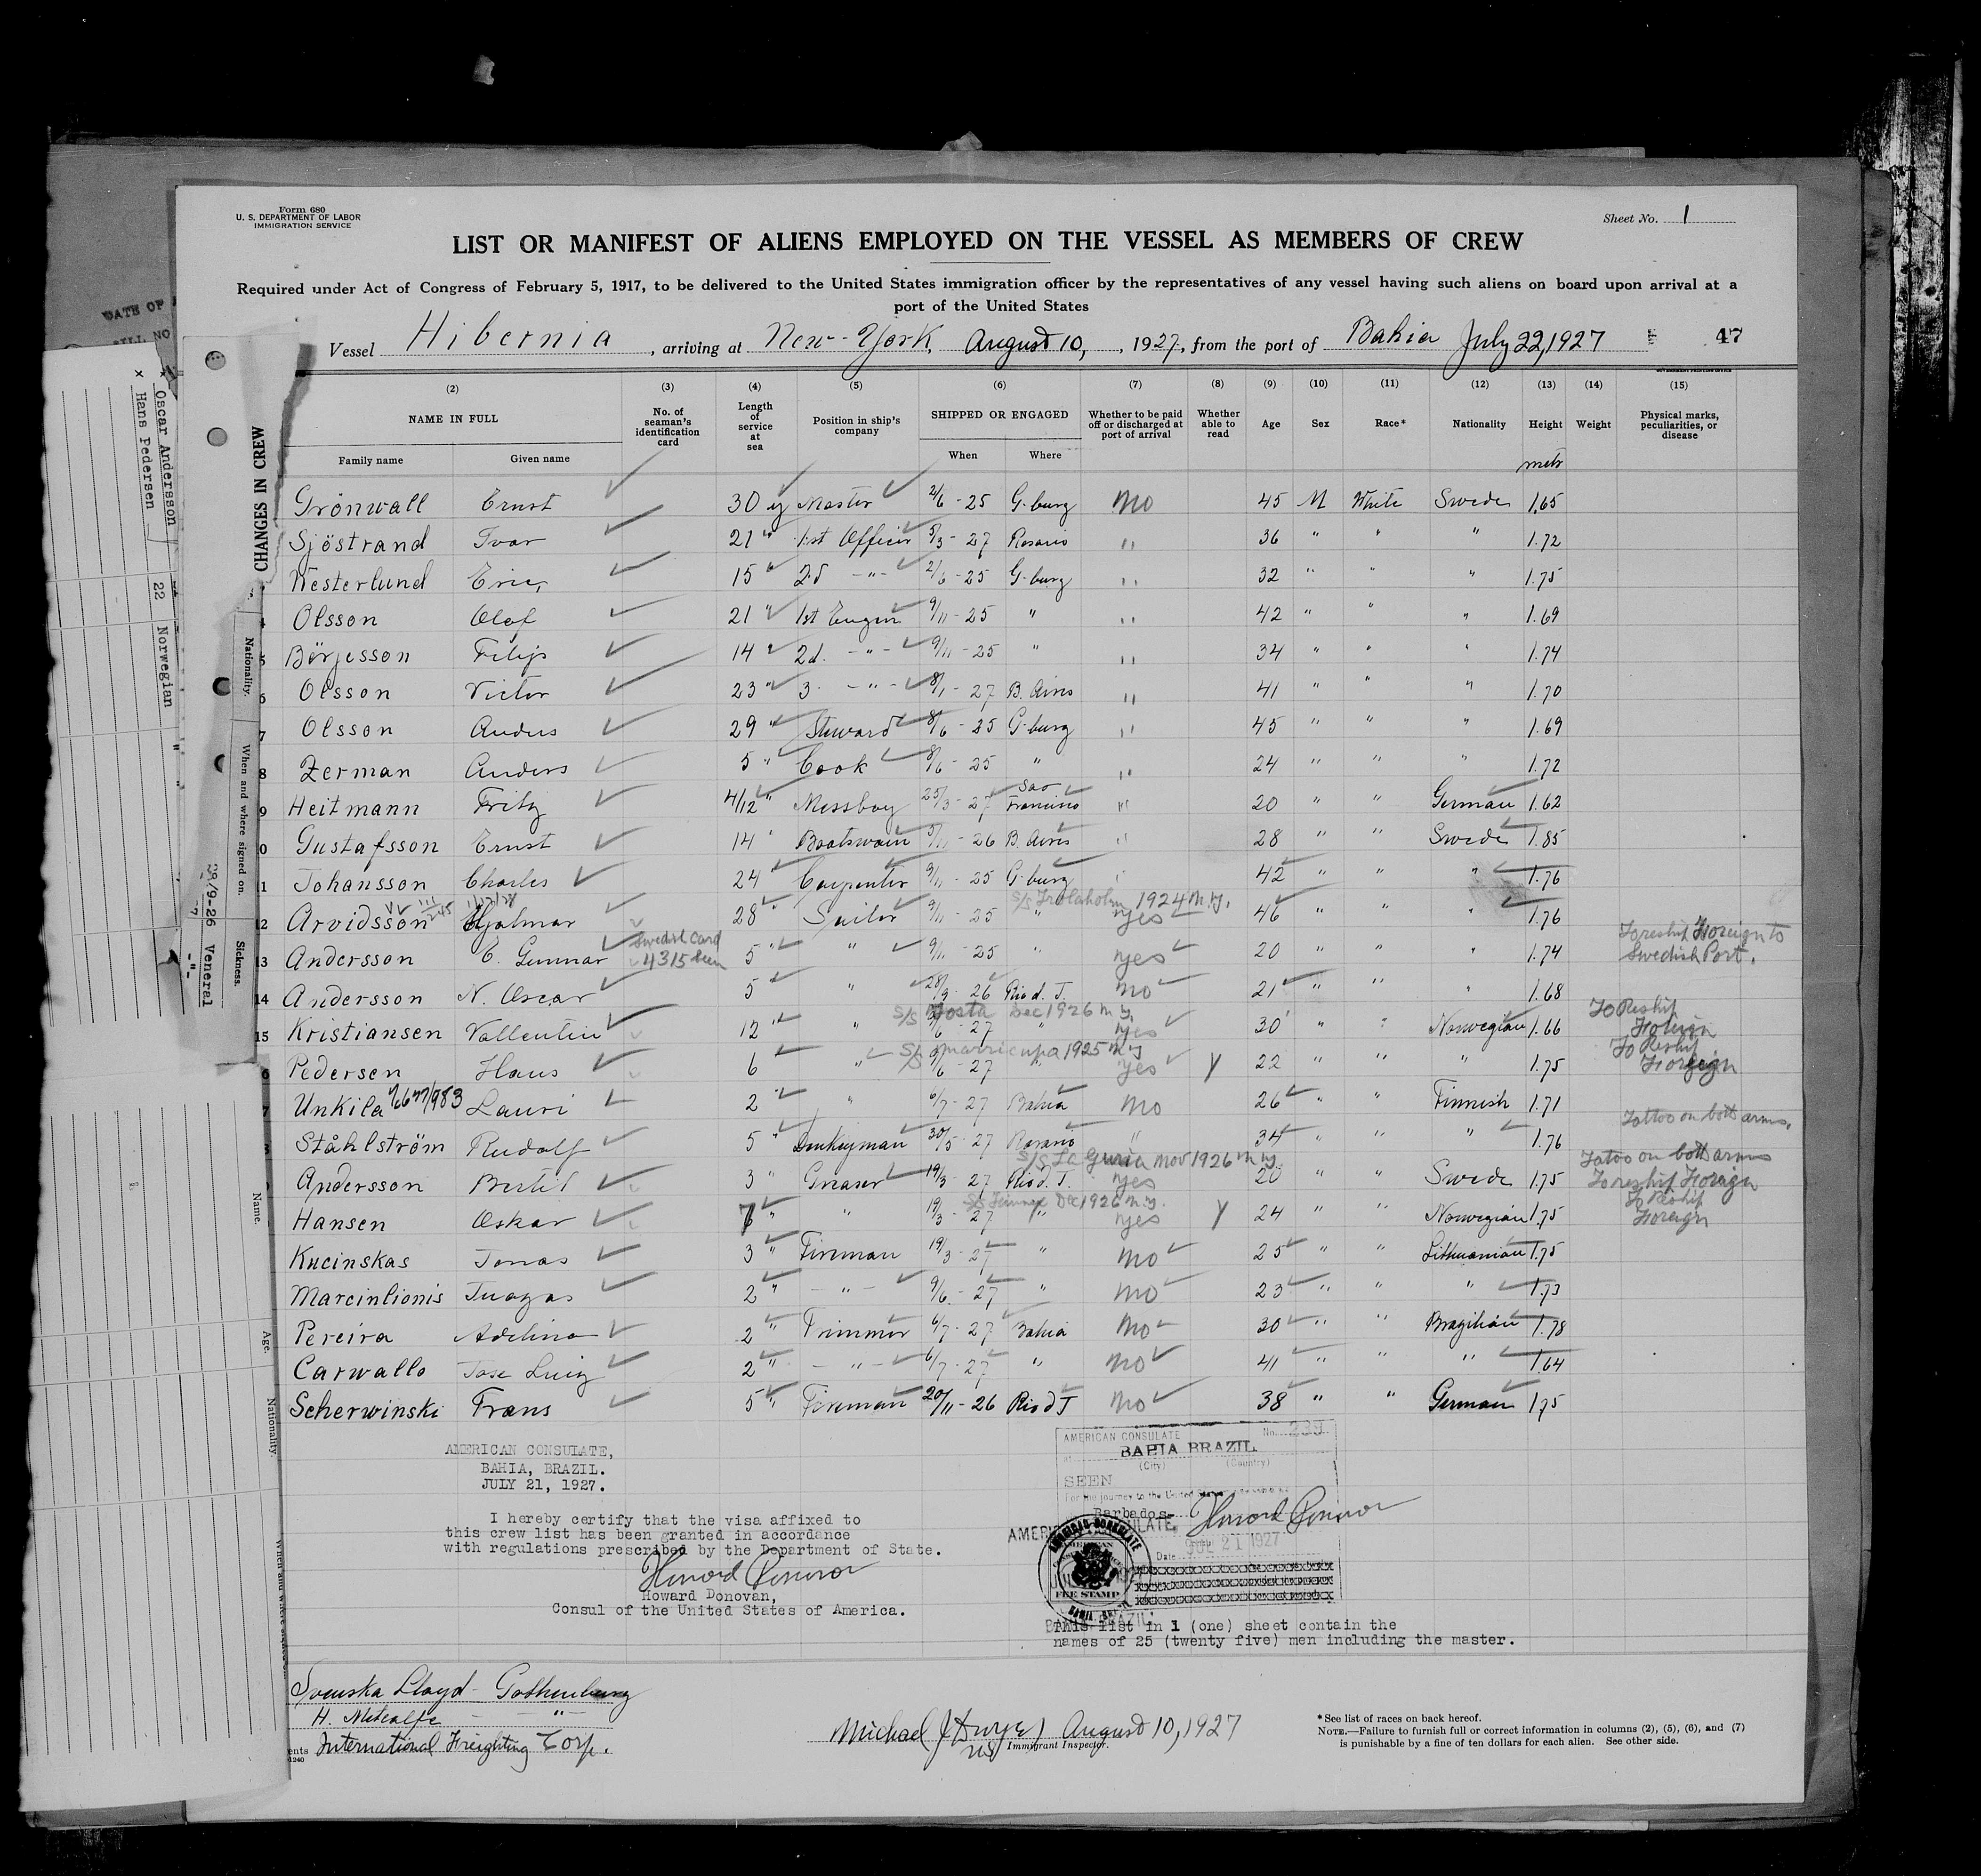 Form 680
U. S. DEPARTMENT OF LABOR
IMMIGRATION SERVICE
Sheet No. 1
LIST OR MANIFEST OF ALIENS EMPLOYED ON THE VESSEL AS MEMBERS OF CREW
Required under Act of Congress of February 5, 1917, to be delivered to the United States immigration officer by the representatives of any vessel having such aliens on board upon arrival at a
port of the United States
Vessel Hibernia, arriving at New-York, August 10, 1927, from the port of Bahia July 22, 1927 47
(2) (3) (4) (5) (6) (7) (8) (9) (10) (11) (12) (13) (14) (15)
NAME IN FULL No. of seaman's identification card Length of service at sea Position in ship's company SHIPPED OR ENGAGED Whether to be paid off or discharged at port of arrival Whether able to read Age Sex Race* Nationality Height Weight Physical marks, peculiarities, or disease
Family name Given name When Where metr
Grönwall Ernst 30 y Master 2/6 - 25 G-burg No 45 M White Swede 1.65
Sjöstrand Ivar 21 " 1st Officer 5/3 - 27 Rosario " 36 " " " 1.72
Westerlund Eric 15 " 2d -"- 2/6 - 25 G-burg " 32 " " " 1.75
Olsson Olof 21 " 1st Engin 9/11 - 25 " " 42 " " " 1.69
5 Börjesson Filip 14 " 2d. -"- 9/11 - 25 " " 34 " " " 1.74
6 Olsson Victor 23 " 3. -"- 8/1 - 27 B. Aires " 41 " " " 1.70
7 Olsson Anders 29 " Steward 8/6 - 25 G-burg " 45 " " " 1.69
8 Zerman Anders 5 " Cook 8/6 - 25 " " 24 " " " 1.72
9 Heitmann Fritz 4/12 " Messboy 25/3 - 27 Sao Francisco " 20 " " German 1.62
0 Gustafsson Ernst 14 " Boatswain 5/11 - 26 B. Aires " 28 " " Swede 1.85
11 Johansson Charles 24 " Carpenter 9/11 - 25 G-burg " 42 " " " 1.76
s/s 1924 N.Y.
12 Arvidsson Hjalmar 28 " Sailor 9/11 - 25 " Yes 46 " " " 1.76
13 Andersson E. Gunnar Swedish Card 4315 seen 5 " " 9/11 - 25 " Yes 20 " " " 1.74 To reship Foreign to Swedish Port.
14 Andersson N. Oscar 5 " " 28/3 - 26 Rio d. J. No 21 " " " 1.68
s/s Dec 1926 N.Y.
15 Kristiansen Vallentin 12 " " 27 " Yes 30 " " Norwegian 1.66 To Reship Foreign
1925 N.Y.
6 Pedersen Hans 6 " " 27 " Yes Y 22 " " " 1.75 To Reship Foreign
7 Unkila Lauri 2 " " 6/7 - 27 Bahia No 26 " " Finnish 1.71
8 Ståhlström Rudolf 5 " Donkeyman 30/5 - 27 Rosario " 34 " " " 1.76 Tattoo on both arms.
s/s Nov 1926 N.Y.
Andersson Bertil 3 " Greaser 19/3 - 27 Rio d. J. Yes 20 " " Swede 1.75 Tatoo on both arms To reship Foreign
s/s Dec 1926 N.Y.
Hansen Oskar 7 " " 19/3 - 27 " Yes Y 24 " " Norwegian 1.75 To Reship Foreign
Kucinskas Jonas 3 " Fireman 19/3 - 27 " No 25 " " Lithuanian 1.75
Marcinlionis Juozas 2 " -"- 9/6 - 27 " No 23 " " " 1.73
Pereira Adelino 2 " Trimmer 6/7 - 27 Bahia No 30 " " Brazilian 1.78
Carwallo Jose Luiz 2 " -"- 6/7 - 27 " No 41 " " " 1.64
Scherwinski Frans 5 " Fireman 20/11 - 26 Rio d J No 38 " " German 1.75
AMERICAN CONSULATE,
BAHIA, BRAZIL.
JULY 21, 1927.
I hereby certify that the visa affixed to
this crew list has been granted in accordance
with regulations prescribed by the Department of State.
Howard Donovan
Howard Donovan,
Consul of the United States of America.
AMERICAN CONSULATE No. 239
at BAHIA BRAZIL
(City) (Country)
SEEN
For the journey to the United States
Barbados
Howard Donovan
AMERICAN CONSULATE
Date JUL 21 1927
FEE STAMP
BAHIA, BRAZIL
This list in 1 (one) sheet contain the
names of 25 (twenty five) men including the master.
Svenska Lloyd - Gothenburg
H. Metcalfe - " -
International Freighting Corp.
Michael J Dwyer August 10, 1927
Immigrant Inspector.
*See list of races on back hereof.
NOTE.—Failure to furnish full or correct information in columns (2), (5), (6), and (7)
is punishable by a fine of ten dollars for each alien. See other side.
CHANGES IN CREW
Nationality.
When and where signed on.
Sickness.
Name.
Age.
Nationality.
x Oscar Andersson
x Hans Pedersen 22 Norwegian
28/9-26 Veneral
-"-
DATE OF